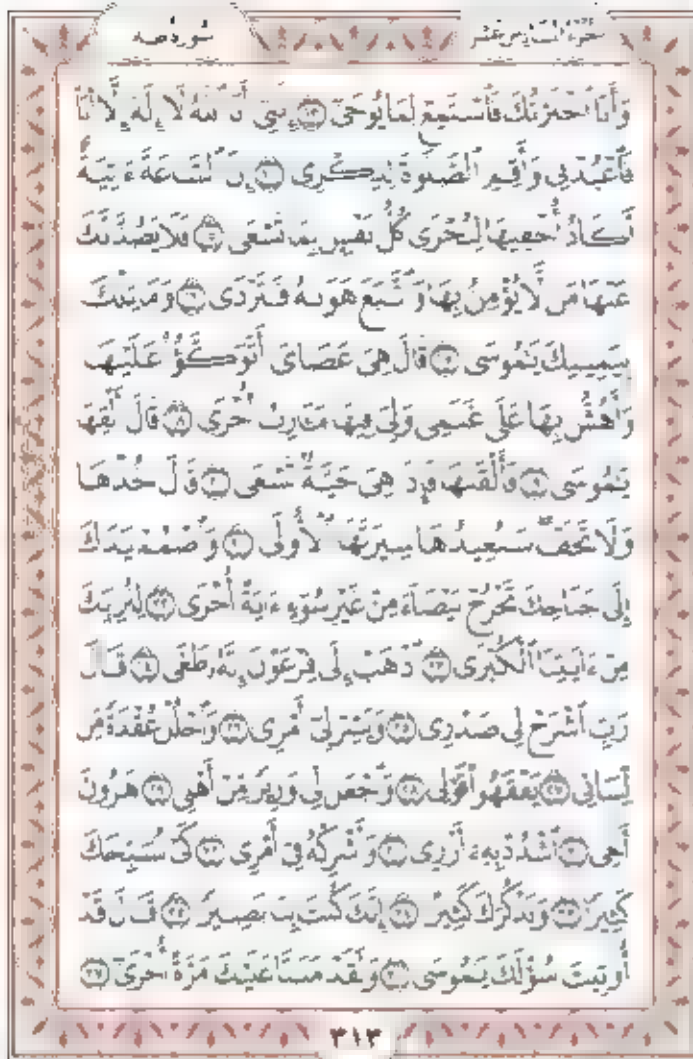 سورة طه
الجزء السادس عشر
وَأَنَا ٱخْتَرْتُكَ فَٱسْتَمِعْ لِمَا يُوحَىٰٓ ﴿١٣﴾ إِنَّنِىٓ أَنَا ٱللَّهُ لَآ إِلَٰهَ إِلَّآ أَنَا۠
فَٱعْبُدْنِى وَأَقِمِ ٱلصَّلَوٰةَ لِذِكْرِىٓ ﴿١٤﴾ إِنَّ ٱلسَّاعَةَ ءَاتِيَةٌ
أَكَادُ أُخْفِيهَا لِتُجْزَىٰ كُلُّ نَفْسٍۭ بِمَا تَسْعَىٰ ﴿١٥﴾ فَلَا يَصُدَّنَّكَ
عَنْهَا مَن لَّا يُؤْمِنُ بِهَا وَٱتَّبَعَ هَوَىٰهُ فَتَرْدَىٰ ﴿١٦﴾ وَمَا تِلْكَ
بِيَمِينِكَ يَٰمُوسَىٰ ﴿١٧﴾ قَالَ هِىَ عَصَاىَ أَتَوَكَّؤُا۟ عَلَيْهَا
وَأَهُشُّ بِهَا عَلَىٰ غَنَمِى وَلِىَ فِيهَا مَـَٔارِبُ أُخْرَىٰ ﴿١٨﴾ قَالَ أَلْقِهَا
يَٰمُوسَىٰ ﴿١٩﴾ فَأَلْقَىٰهَا فَإِذَا هِىَ حَيَّةٌ تَسْعَىٰ ﴿٢٠﴾ قَالَ خُذْهَا
وَلَا تَخَفْ سَنُعِيدُهَا سِيرَتَهَا ٱلْأُولَىٰ ﴿٢١﴾ وَٱضْمُمْ يَدَكَ
إِلَىٰ جَنَاحِكَ تَخْرُجْ بَيْضَآءَ مِنْ غَيْرِ سُوٓءٍ ءَايَةً أُخْرَىٰ ﴿٢٢﴾ لِنُرِيَكَ
مِنْ ءَايَٰتِنَا ٱلْكُبْرَى ﴿٢٣﴾ ٱذْهَبْ إِلَىٰ فِرْعَوْنَ إِنَّهُۥ طَغَىٰ ﴿٢٤﴾ قَالَ
رَبِّ ٱشْرَحْ لِى صَدْرِى ﴿٢٥﴾ وَيَسِّرْ لِىٓ أَمْرِى ﴿٢٦﴾ وَٱحْلُلْ عُقْدَةً مِّن
لِّسَانِى ﴿٢٧﴾ يَفْقَهُوا۟ قَوْلِى ﴿٢٨﴾ وَٱجْعَل لِّى وَزِيرًا مِّنْ أَهْلِى ﴿٢٩﴾ هَٰرُونَ
أَخِى ﴿٣٠﴾ ٱشْدُدْ بِهِۦٓ أَزْرِى ﴿٣١﴾ وَأَشْرِكْهُ فِىٓ أَمْرِى ﴿٣٢﴾ كَىْ نُسَبِّحَكَ
كَثِيرًا ﴿٣٣﴾ وَنَذْكُرَكَ كَثِيرًا ﴿٣٤﴾ إِنَّكَ كُنتَ بِنَا بَصِيرًا ﴿٣٥﴾ قَالَ قَدْ
أُوتِيتَ سُؤْلَكَ يَٰمُوسَىٰ ﴿٣٦﴾ وَلَقَدْ مَنَنَّا عَلَيْكَ مَرَّةً أُخْرَىٰٓ ﴿٣٧﴾
٣١٣